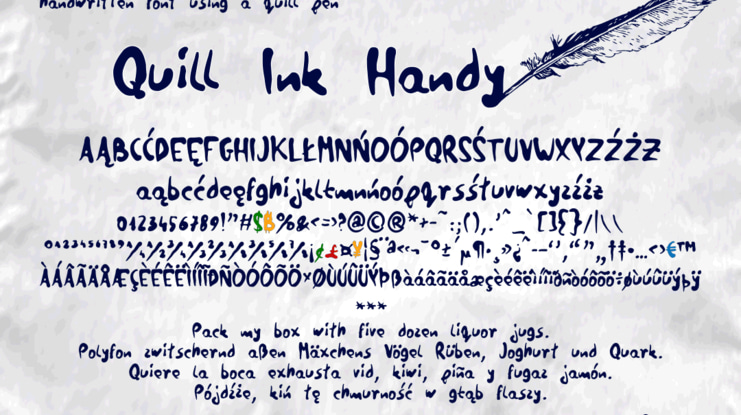 handwritten font using a quill pen
Quill Ink Handy
AĄBCĆDEĘFGHIJKLŁMNŃOÓPQRSŚTUVWXYZŹŻƵ
aąbcćdeęfghijklłmnńoópqrsśtuvwxyzźżƶ
0123456789!"#$฿%&<=>?@©®*+-~:;(),.'^_`[]{}/|\
¡¢£¤¥¦§¨ª«¬¯°±´µ¶·¸»¿
ÀÁÂÃÄÅÆÇÈÉÊËÌÍÎÏÐÑÒÓÔÕÖ×ØÙÚÛÜÝÞßàáâãäåæçèéêëìíîïðñòóôõö÷øùúûüýþÿ
***
Pack my box with five dozen liquor jugs.
Polyfon zwitschernd aßen Mäxchens Vögel Rüben, Joghurt und Quark.
Quiere la boca exhausta vid, kiwi, piña y fugaz jamón.
Pójdźże, kiń tę chmurność w głąb flaszy.